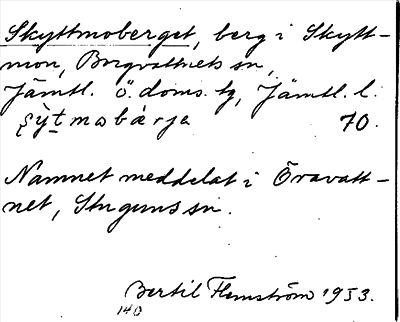 Skyttmoberget, berg i Skytt-
mon, Borgvattnets sn,
Jämtl. ö. doms. tg, Jämtl. l.
ʂỳt mobærja 70.
Namnet meddelat i Öravatt-
net, Stuguns sn.
Bertil Flemström 1953.
140